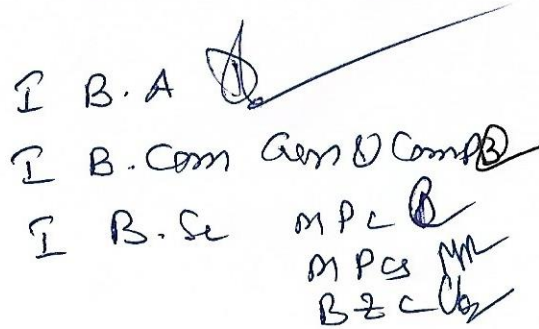 I B.A
I B.Com Gen ① Comp ③
I B.Sc MPC
MPCs
BZC